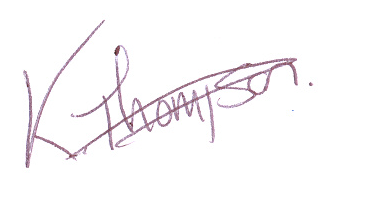 K. Thompson.